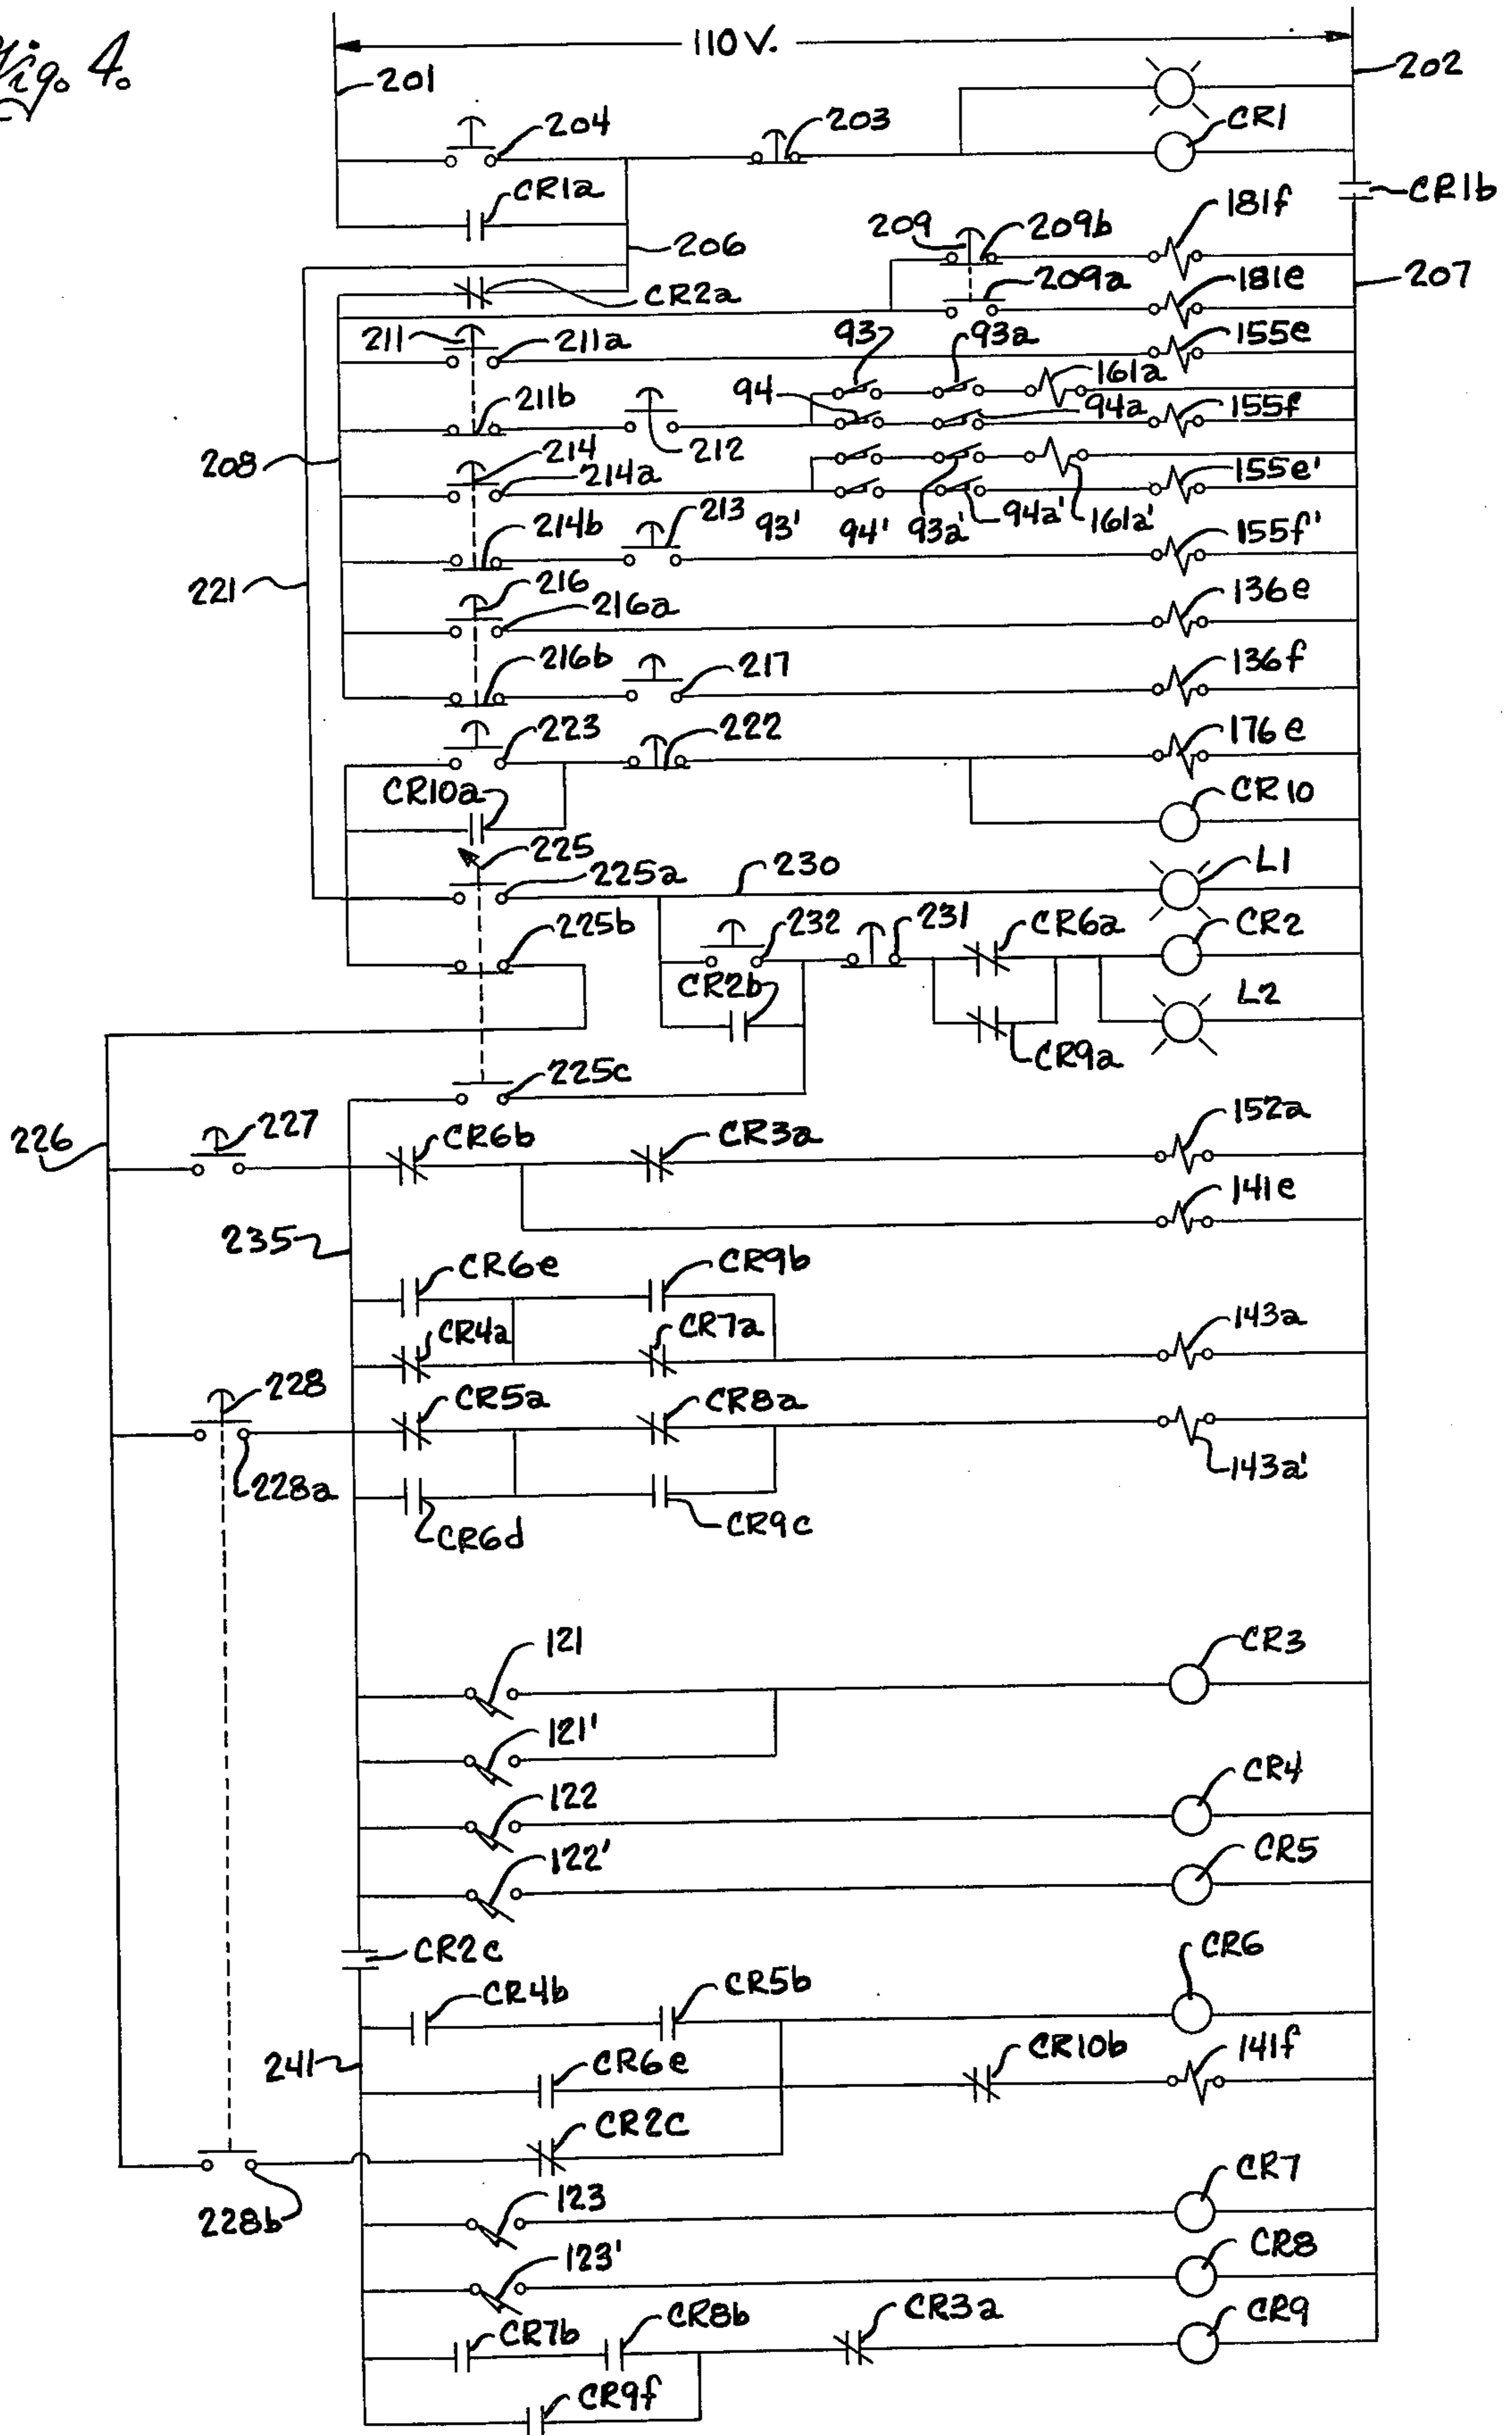 Fig. 4.
110 V.
201
202
204
203
CR1
CR1a
CR1b
206
209
209b
181f
CR2a
209a
181e
207
211
211a
93
93a
155e
161a
211b
94
94a
155f
208
214
212
214a
155e'
214b
213
93'
94'
93a'
94a'
161a'
155f'
221
216
216a
136e
216b
217
136f
223
222
176e
CR10a
CR10
225
225a
230
L1
225b
232
231
CR6a
CR2
CR2b
L2
CR9a
225c
226
227
CR6b
CR3a
152a
141e
235
CR6e
CR9b
CR4a
CR7a
143a
228
CR5a
CR8a
228a
143a'
CR6d
CR9c
121
CR3
121'
122
CR4
122'
CR5
CR2c
CR6
CR4b
CR5b
241
CR6e
CR10b
141f
CR2C
228b
123
CR7
123'
CR8
CR7b
CR8b
CR3a
CR9
CR9f